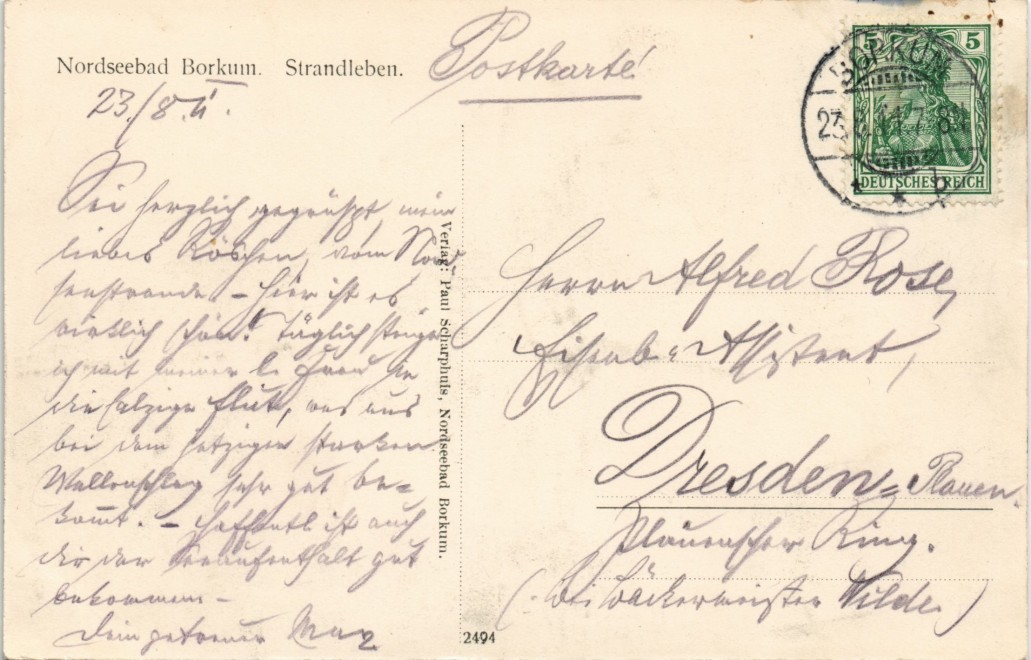 Nordseebad Borkum. Strandleben.
Postkarte
23./8. 11.
Sei herzlich gegrüßt, mein
liebes Röschen, vom Nord-
seestrande – hier ist es
wirklich schön! Täglich steige
ich mit meiner l. Frau in
die salzige Flut, was uns
bei dem jetzigen starken
Wellenschlag sehr gut be=
kommt. – Hoffentl. ist auch
dir der Seeaufenthalt gut
bekommen –
Dein getreuer Max
Verlag: Paul Scharphuis, Nordseebad Borkum.
2494
5 5
DEUTSCHES REICH
BORKUM
23.8.11. 8
b
Herrn Alfred Rose,
Eisenb.-Assistent,
Dresden=Plauen.
Plauenscher Ring.
(bei Bäckermeister Wilde.)